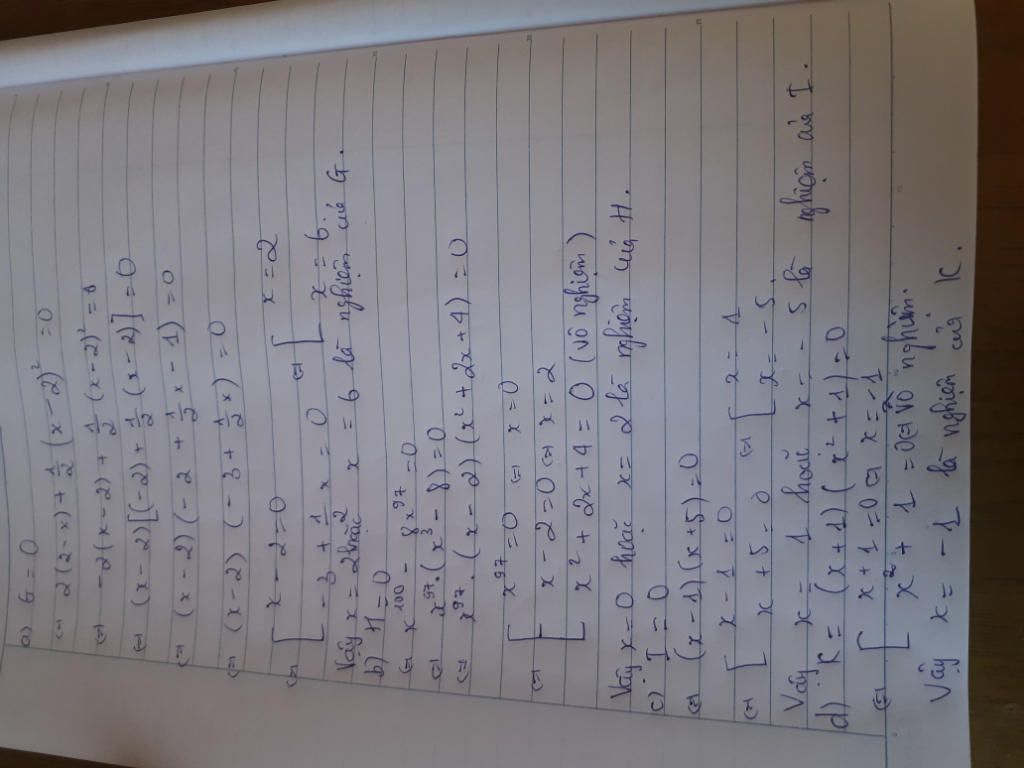 a) G = 0
⇔ 2(2-x) + 1/2 (x-2)² = 0
⇔ -2(x-2) + 1/2 (x-2)² = 0
⇔ (x-2)[(-2) + 1/2 (x-2)] = 0
⇔ (x-2)(-2 + 1/2 x - 1) = 0
⇔ (x-2)(-3 + 1/2 x) = 0
⇔ [ x-2 = 0 ⇔ [ x = 2
-3 + 1/2 x = 0 x = 6
Vậy x = 2 hoặc x = 6 là nghiệm của G.
b) H = 0
⇔ x¹⁰⁰ - 8x⁹⁷ = 0
⇔ x⁹⁷.(x³ - 8) = 0
⇔ x⁹⁷.(x-2)(x²+2x+4) = 0
⇔ [ x⁹⁷ = 0 ⇔ x = 0
x-2 = 0 ⇔ x = 2
x²+2x+4 = 0 (vô nghiệm)
Vậy x = 0 hoặc x = 2 là nghiệm của H.
c) I = 0
⇔ (x-1)(x+5) = 0
⇔ [ x-1 = 0 ⇔ [ x = 1
x+5 = 0 x = -5.
Vậy x = 1 hoặc x = -5 là nghiệm của I.
d) K = (x+1)(x²+1) = 0
⇔ [ x+1 = 0 ⇔ x = -1
x²+1 = 0 ⇔ vô nghiệm.
Vậy x = -1 là nghiệm của K.